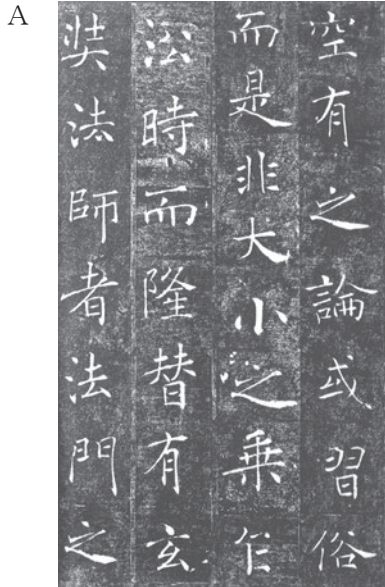 A
空有之論或習俗
而是非大小之乗乍
㳂時而隆替有玄
奘法師者法門之